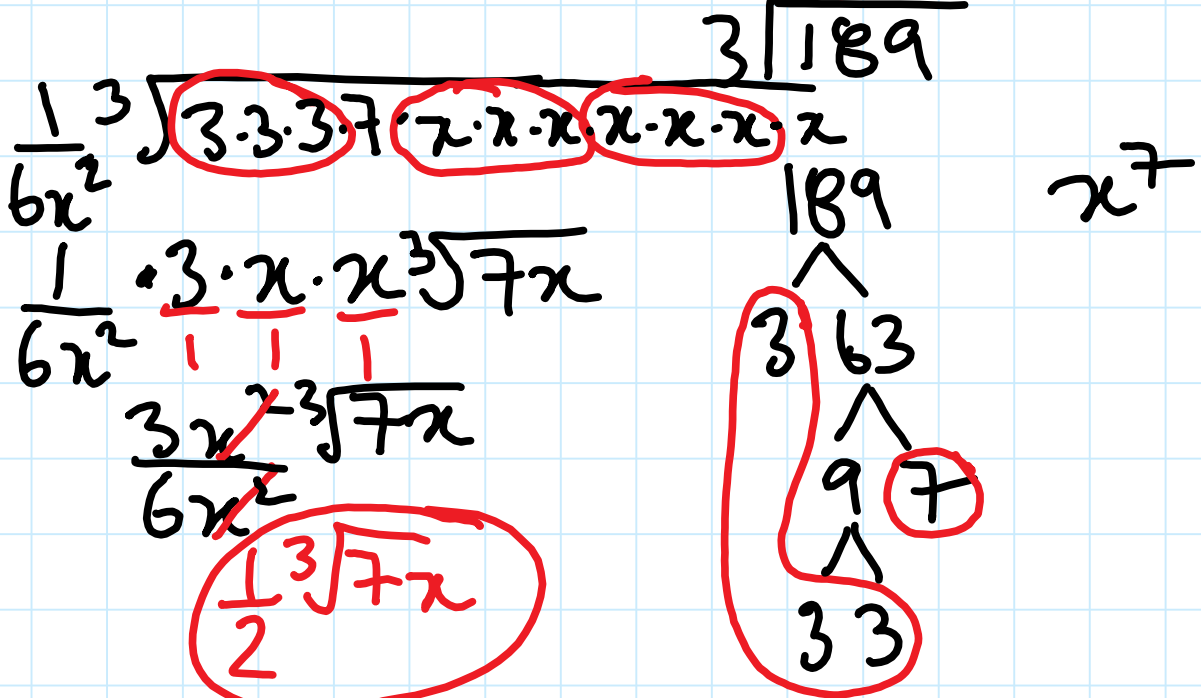 ∛189
1/(6x²) ∛(3·3·3·7·x·x·x·x·x·x·x)
189
x⁷
1/(6x²) ·3·x·x ∛(7·x)
1 1 1
3 63
3x²/(6x²) ∛(7·x)
9 7
1/2 ∛(7·x)
3 3